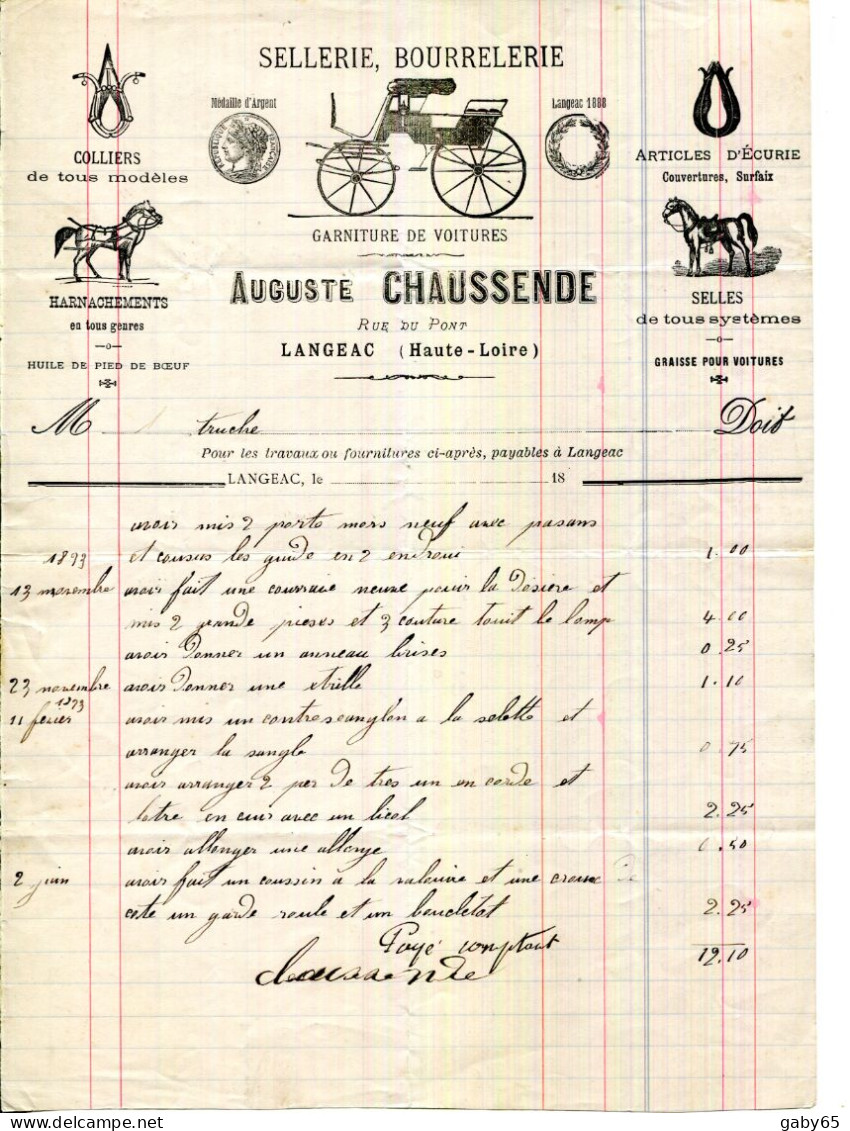 SELLERIE, BOURRELERIE
Médaille d'Argent
Langeac 1888
COLLIERS
de tous modèles
ARTICLES D'ÉCURIE
Couvertures, Surfaix
GARNITURE DE VOITURES
AUGUSTE CHAUSSENDE
RUE DU PONT
LANGEAC (Haute-Loire)
HARNACHEMENTS
en tous genres
HUILE DE PIED DE BŒUF
SELLES
de tous systèmes
GRAISSE POUR VOITURES
M truche Doit
Pour les travaux ou fournitures ci-après, payables à Langeac
LANGEAC, le 18
avoir mis 2 porte mors neuf avec pasans
1893 et cousus les guide en 2 endroui 1.00
13 novembre avoir fait une courraie neuve pouir la Désiere et
mis 2 grande pieses et 3 couture touit le lomp 4.00
avoir Donner un anneau brises 0.25
23 novembre avoir Donner une etrille 1.10
1893
11 fevier avoir mis un contresanglon a la selette et
arranger la sangle 0.75
avoir arranger 2 per De tres un en corde et
lotre en cuir avec un licol 2.25
avoir allonger une allonge 0.50
2 juin avoir fait un coussin à la valouire et une De
cote un garde roule et un boucletot 2.25
Payé comptant 12.10
chaussende
delcampe.net
gaby65